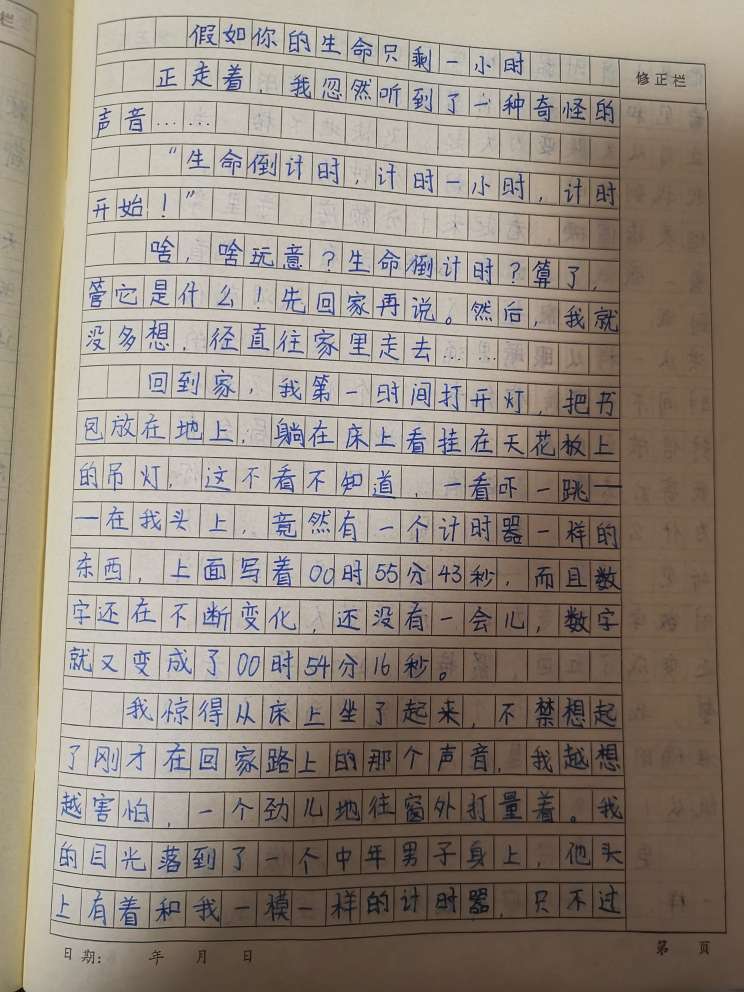 假如你的生命只剩一小时
修正栏
正走着，我忽然听到了一种奇怪的
声音……
“生命倒计时，计时一小时，计时
开始！”
啥，啥玩意？生命倒计时？算了，
管它是什么！先回家再说。然后，我就
没多想，径直往家里走去……
回到家，我第一时间打开灯，把书
包放在地上，躺在床上看挂在天花板上
的吊灯，这不看不知道，一看吓一跳—
—在我头上，竟然有一个计时器一样的
东西，上面写着00时55分43秒，而且数
字还在不断变化，还没有一会儿，数字
就又变成了00时54分16秒。
我惊得从床上坐了起来，不禁想起
了刚才在回家路上的那个声音，我越想
越害怕，一个劲儿地往窗外打量着。我
的目光落到了一个中年男子身上，他头
上有着和我一模一样的计时器，只不过
日期： 年 月 日
第 页